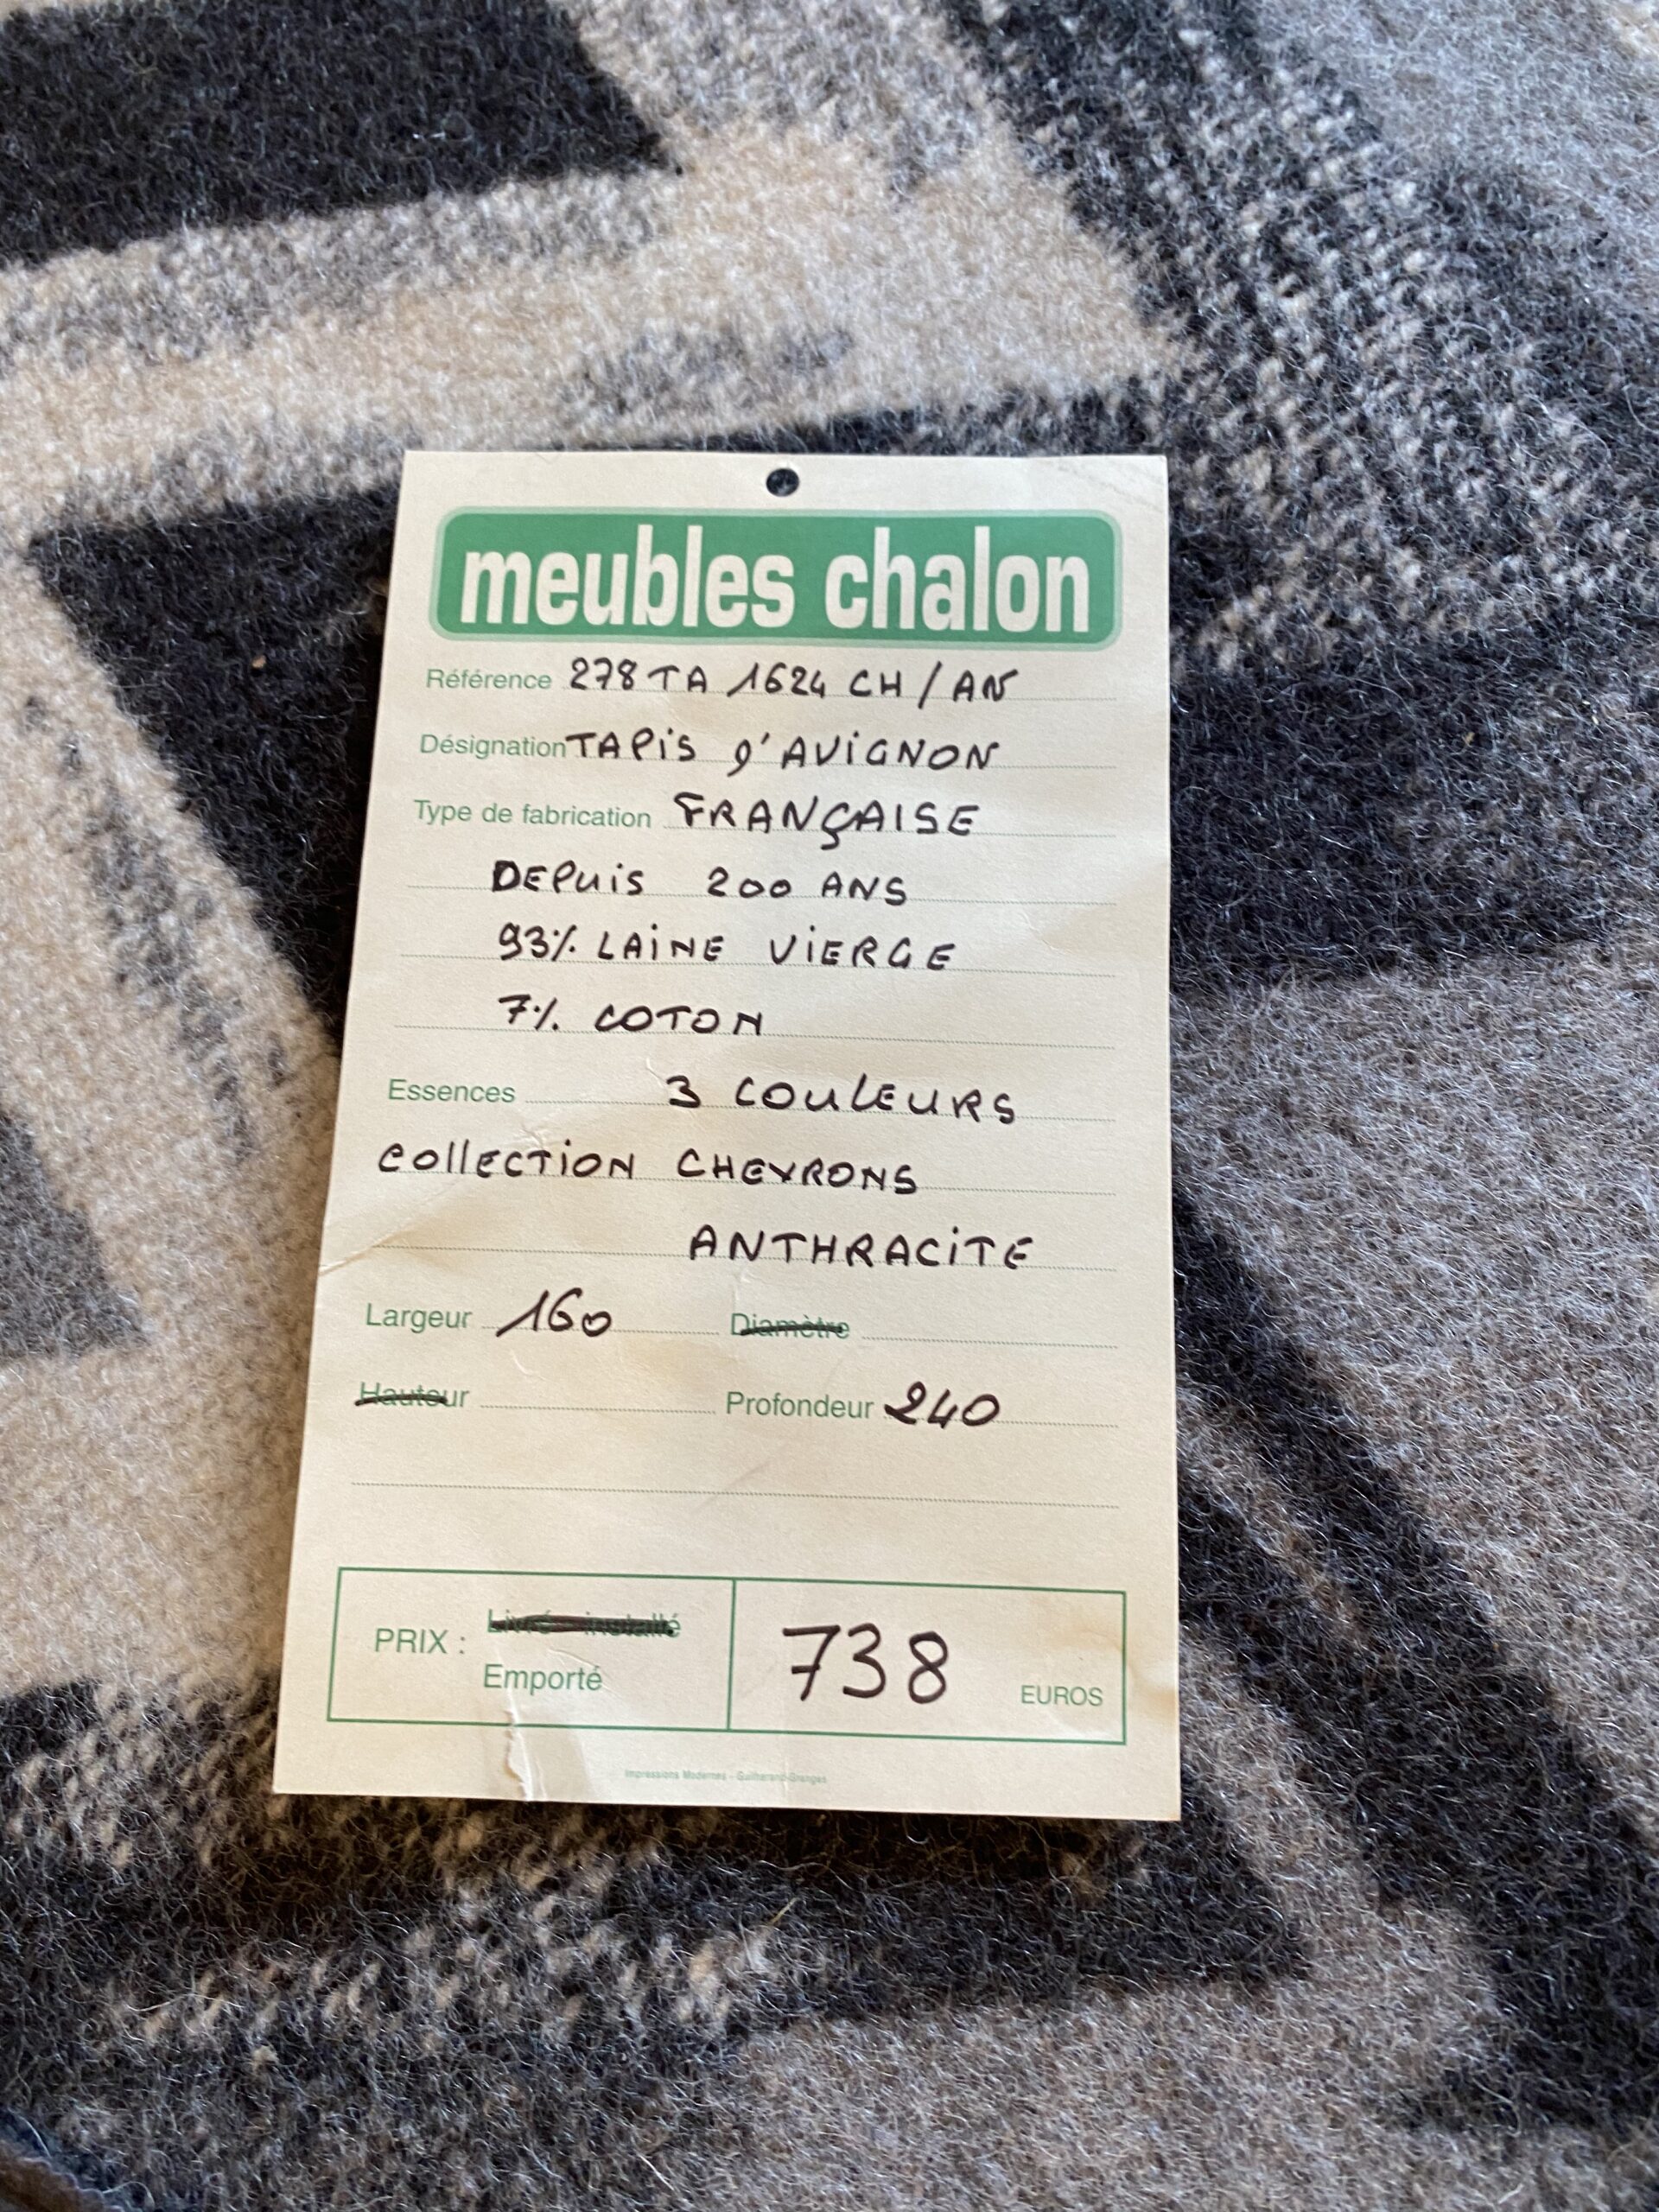 meubles chalon
Référence 278 TA 1624 CH / AN
Désignation TAPiS d'AViGNON
Type de fabrication FRANÇAISE
DEPuiS 200 ANS
93% LAiNE ViERGE
7% COTON
Essences 3 COuLEURS
COllECTiON CHEVRONS
ANTHRACiTE
Largeur 160 Diamètre
Hauteur Profondeur 240
PRIX : Livré installé
Emporté
738 EUROS
Impressions Modernes - Guilherand-Granges